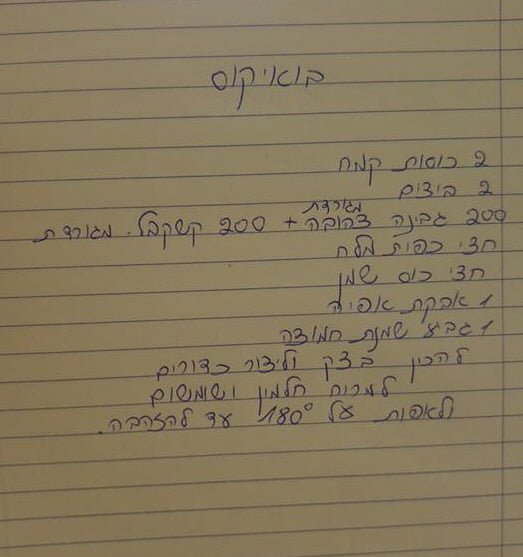 בואיקוס
2 כוסות קמח
2 ביצים
מגורדת
200 גבינה צהובה + 200 קשקבל. מגורדת
חצי כפית מלח
חצי כוס שמן
1 אבקת אפיה
1 גביע שמנת חמוצה
להכין בצק וליצור כדורים
למרוח חלמון ושומשום
ולאפות על 180° עד להזהבה.